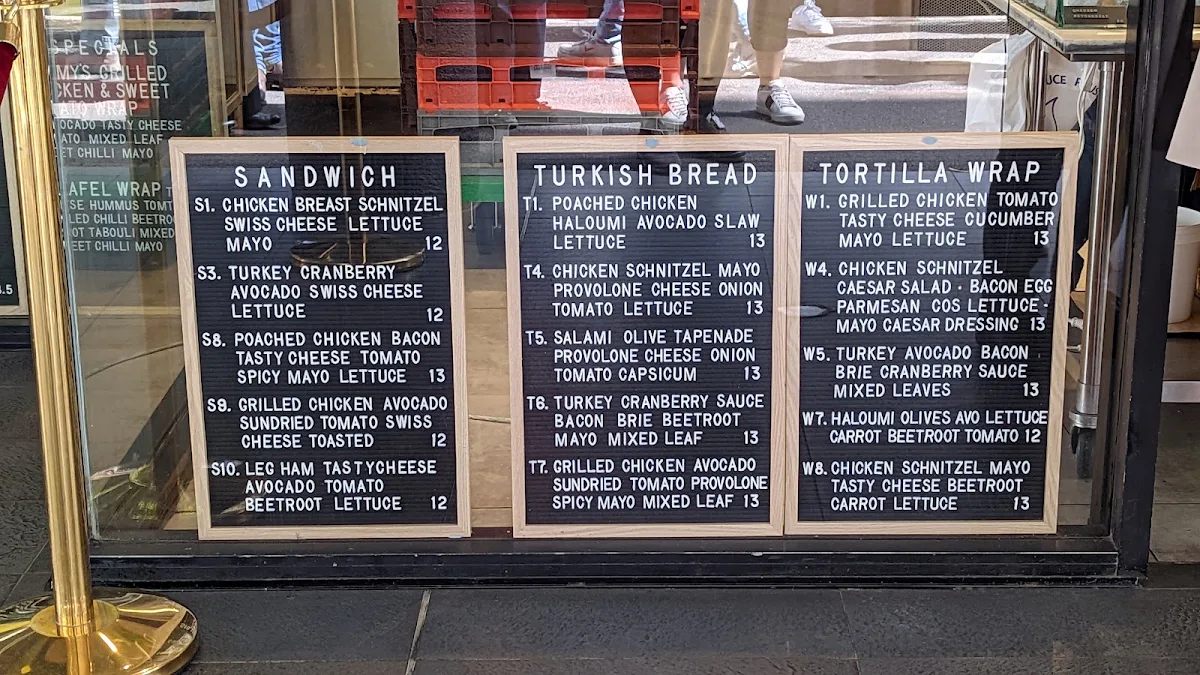 SPECIALS
GRILLED
& SWEET
WRAP
TASTY CHEESE
MIXED LEAF
CHILLI MAYO
WRAP
HUMMUS
CHILLI
TABOULI MIXED
CHILLI MAYO
SANDWICH
S1. CHICKEN BREAST SCHNITZEL
SWISS CHEESE LETTUCE
MAYO 12
S3. TURKEY CRANBERRY
AVOCADO SWISS CHEESE
LETTUCE 12
S8. POACHED CHICKEN BACON
TASTY CHEESE TOMATO
SPICY MAYO LETTUCE 13
S9. GRILLED CHICKEN AVOCADO
SUNDRIED TOMATO SWISS
CHEESE TOASTED 12
S10. LEG HAM TASTYCHEESE
AVOCADO TOMATO
BEETROOT LETTUCE 12
TURKISH BREAD
T1. POACHED CHICKEN
HALOUMI AVOCADO SLAW
LETTUCE 13
T4. CHICKEN SCHNITZEL MAYO
PROVOLONE CHEESE ONION
TOMATO LETTUCE 13
T5. SALAMI OLIVE TAPENADE
PROVOLONE CHEESE ONION
TOMATO CAPSICUM 13
T6. TURKEY CRANBERRY SAUCE
BACON BRIE BEETROOT
MAYO MIXED LEAF 13
T7. GRILLED CHICKEN AVOCADO
SUNDRIED TOMATO PROVOLONE
SPICY MAYO MIXED LEAF 13
TORTILLA WRAP
W1. GRILLED CHICKEN TOMATO
TASTY CHEESE CUCUMBER
MAYO LETTUCE 13
W4. CHICKEN SCHNITZEL
CAESAR SALAD · BACON EGG
PARMESAN COS LETTUCE -
MAYO CAESAR DRESSING 13
W5. TURKEY AVOCADO BACON
BRIE CRANBERRY SAUCE
MIXED LEAVES 13
W7. HALOUMI OLIVES AVO LETTUCE
CARROT BEETROOT TOMATO 12
W8. CHICKEN SCHNITZEL MAYO
TASTY CHEESE BEETROOT
CARROT LETTUCE 13